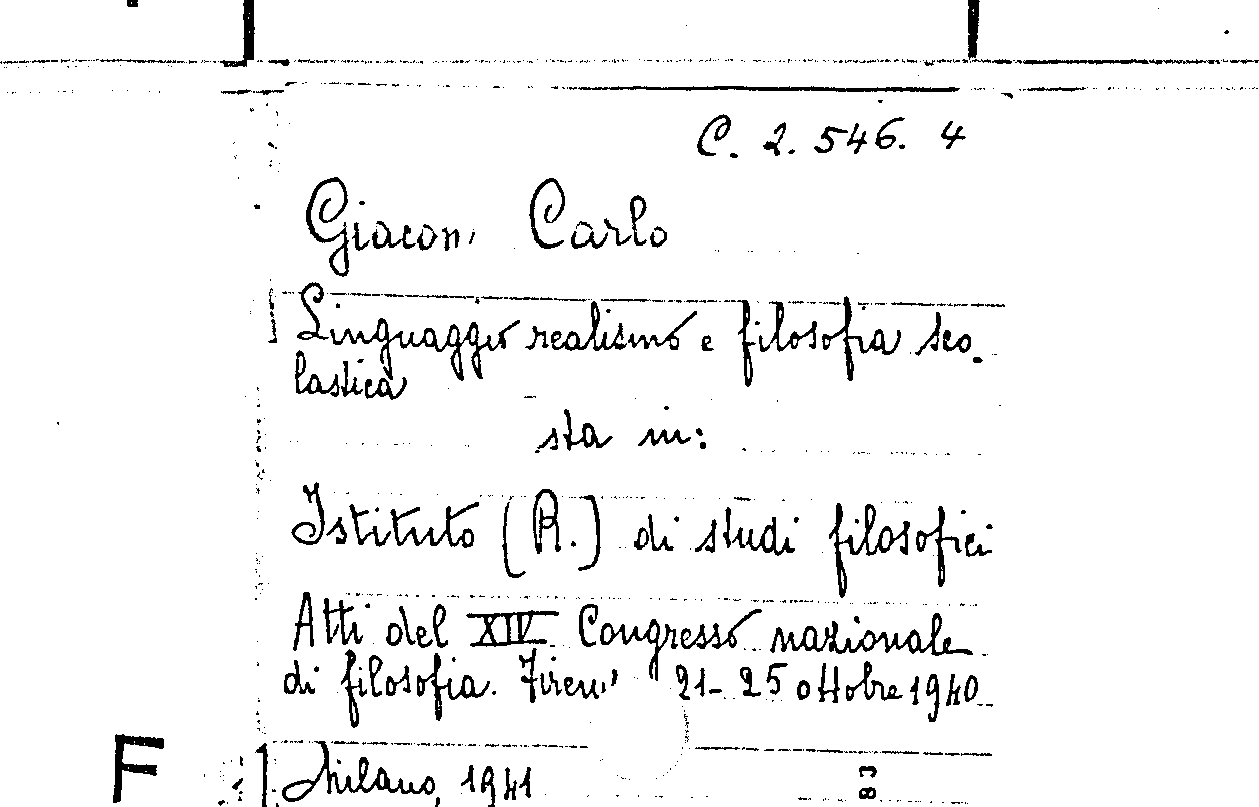 C. 2. 546. 4
Giacon, Carlo
Linguaggio realismo e filosofia sco-
lastica
sta in:
Istituto (R.) di studi filosofici
Atti del XIV Congresso nazionale
di filosofia. 21-25 ottobre 1940
F
Milano, 1941
83